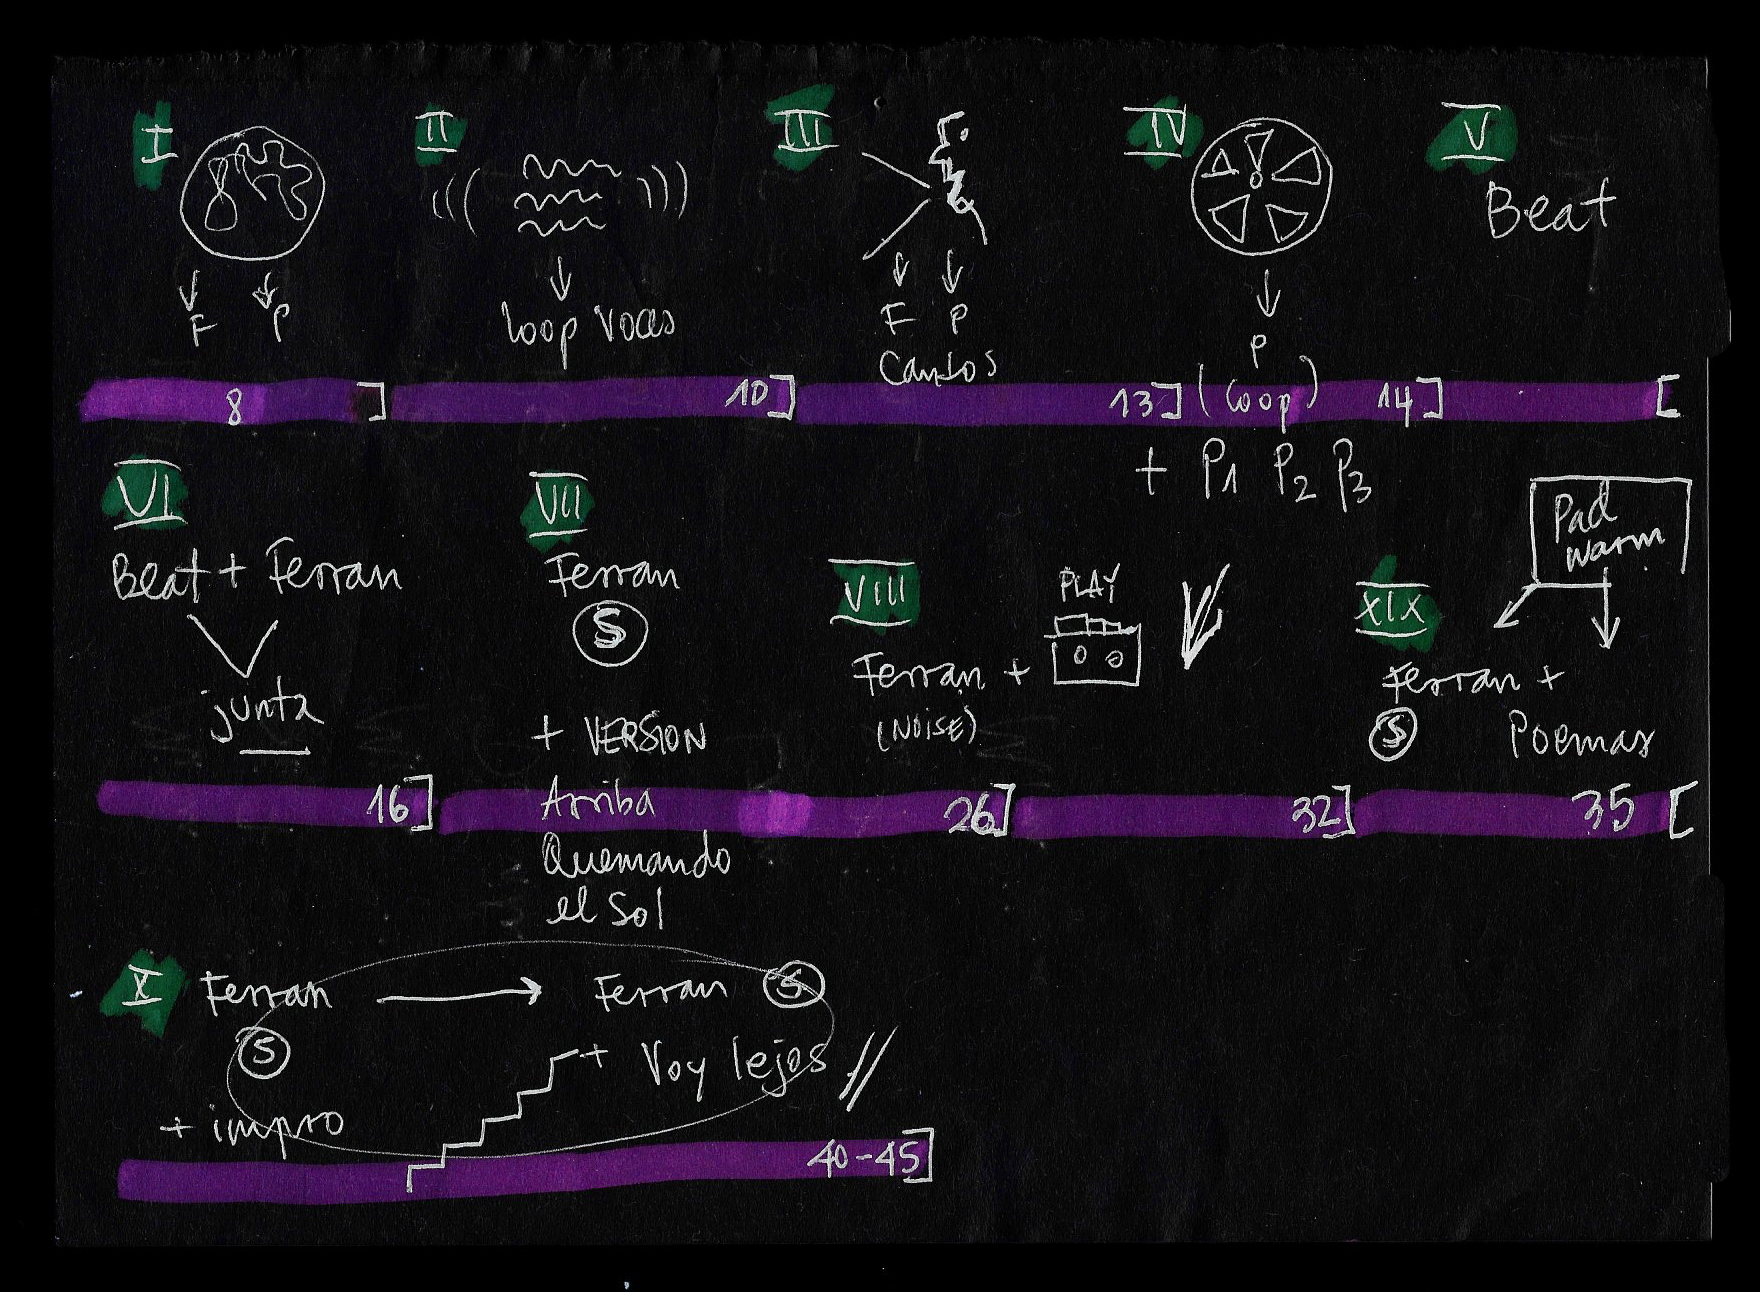 I
II
III
IV
V
Beat
F P
loop voces
F P
Cantos
P
(loop)
8]
10]
13]
14]
[
+ P1 P2 P3
VI
Beat + Ferran
junta
VII
Ferran
S
+ VERSION
Arriba
Quemando
el Sol
VIII
PLAY
Ferran +
(NOISE)
Pad
warm
XIX
Ferran +
S Poemas
16]
26]
32]
35 [
X Ferran → Ferran S
S
+ Voy lejos //
+ impro
40-45]